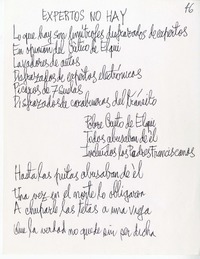 46
EXPERTOS NO HAY
Lo que hay son disfrazados de expertos
En opinión del Cristo de Elqui
Lavadores de autos
Disfrazados de expertos electrónicos
Disfrazados de carabineros del tránsito
Pobre Cristo de Elqui
Todos abusaban de él
Incluidos los Padres Franciscanos
Hasta las putas abusaban de él
Una vez en el norte lo obligaron
A chuparle las tetas a una vieja
Que la verdad no quede sin ser dicha